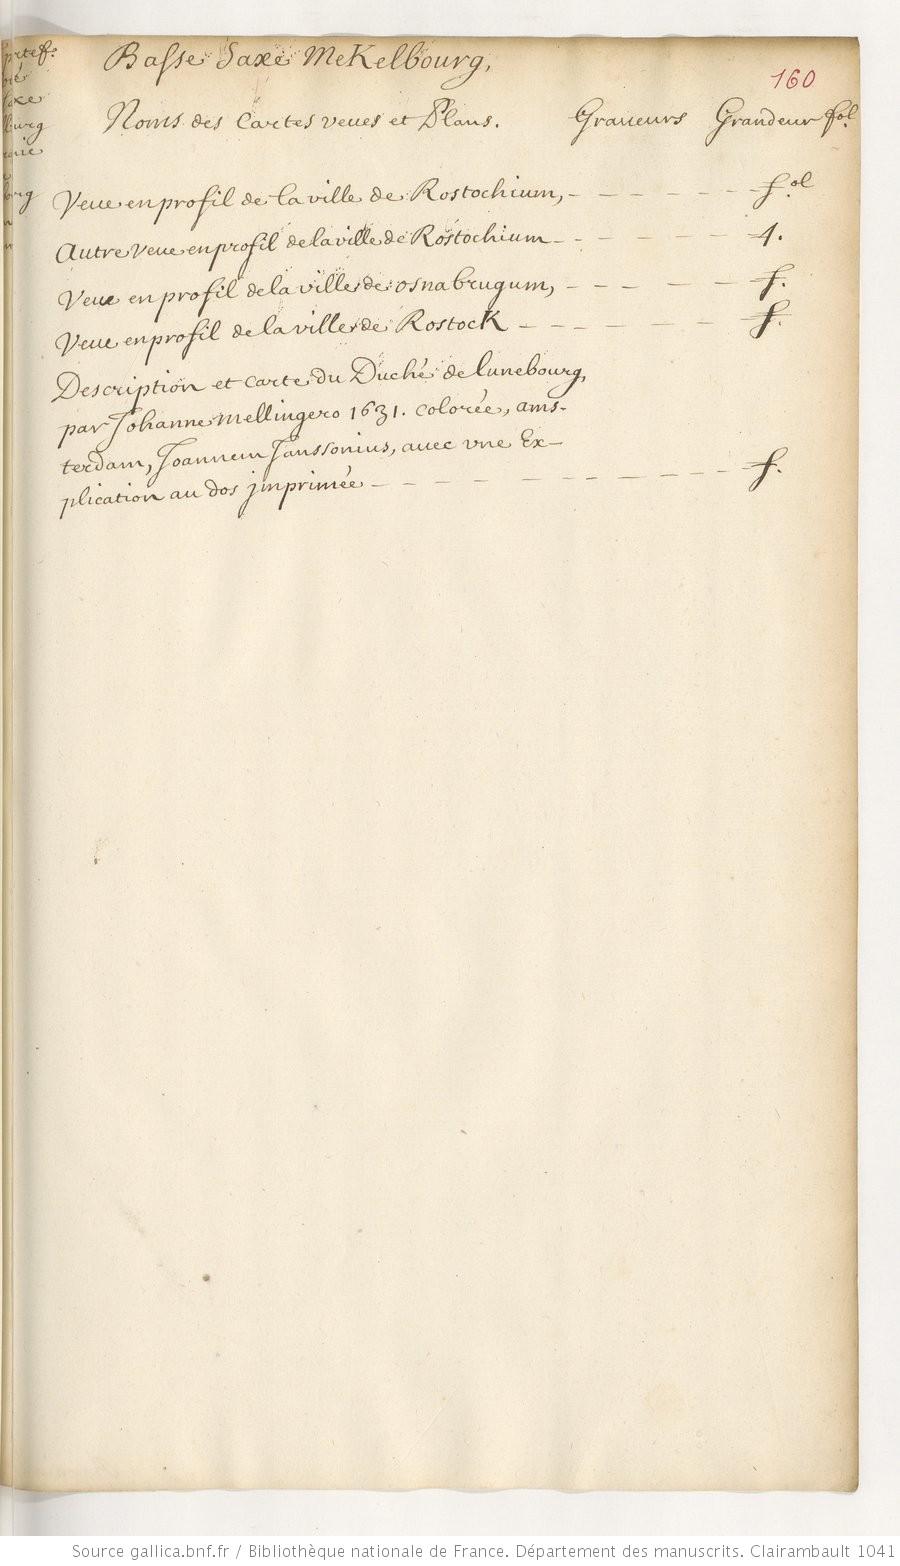 Basse Saxe Mekelbourg,
160
Noms des Cartes veues et Plans. Graueurs Grandeur fol.
Veue en profil de la ville de Rostochium, - - - - - - - fol
Autre veue en profil de la ville de Rostochium - - - - - - 4.
Veue en profil de la ville de osnabrugum, - - - - - - f.
Veue en profil de la ville de Rostock - - - - - - f.
Description et carte du Duché de lunebourg,
par Johanne mellingero 1631. colorée, ams-
terdam, Joannem Janssonius, auec vne Ex-
plication au dos jmprimée - - - - - - - - - f.
Source gallica.bnf.fr / Bibliothèque nationale de France. Département des manuscrits. Clairambault 1041